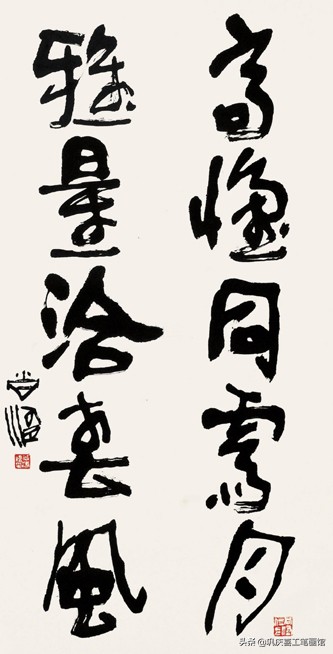 高懷同霽月
雅量洽春風
头条 @巩庆喜工笔画馆